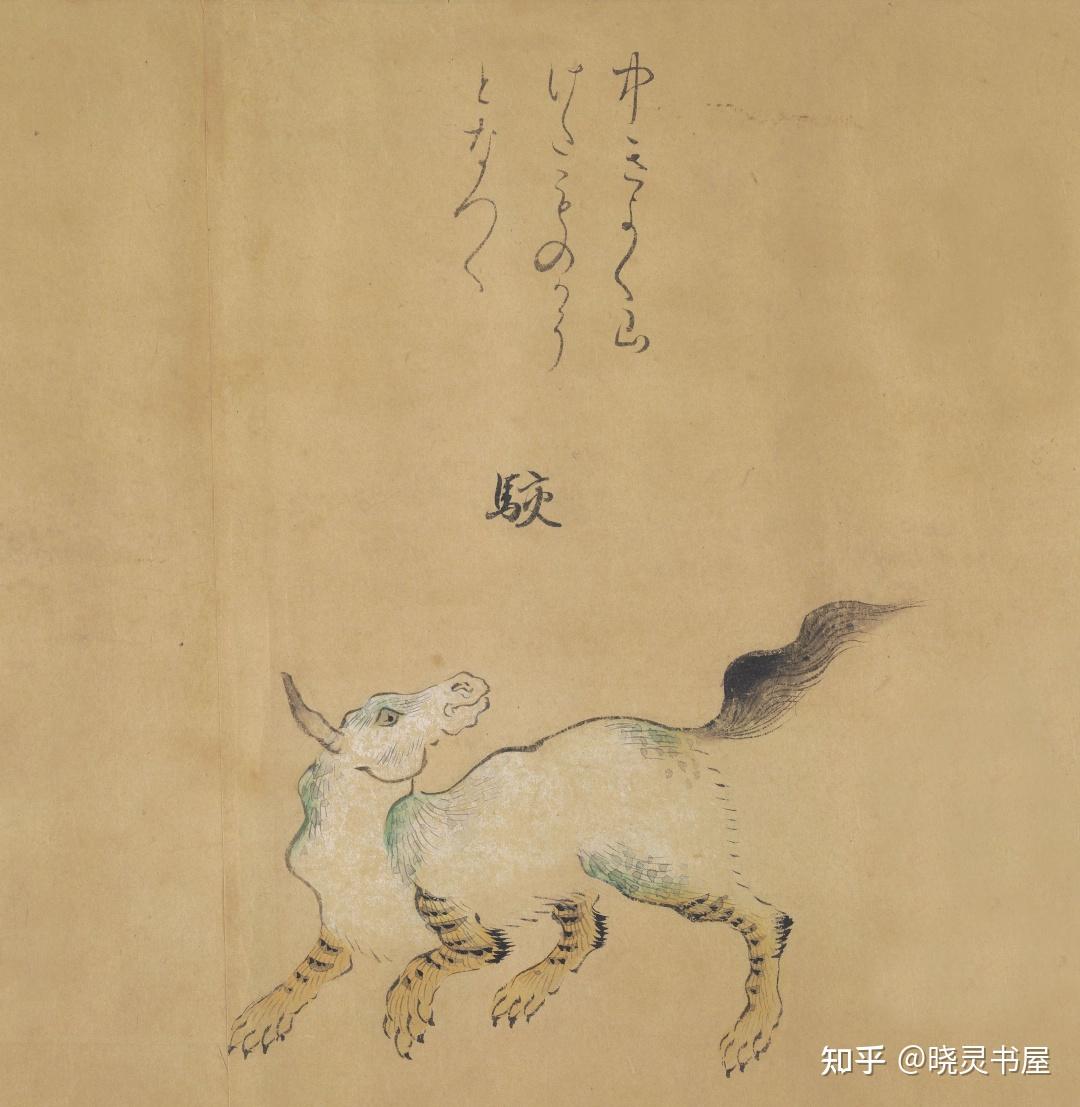 中きよく山
けたものかう
となつく
駮
知乎 @晓灵书屋